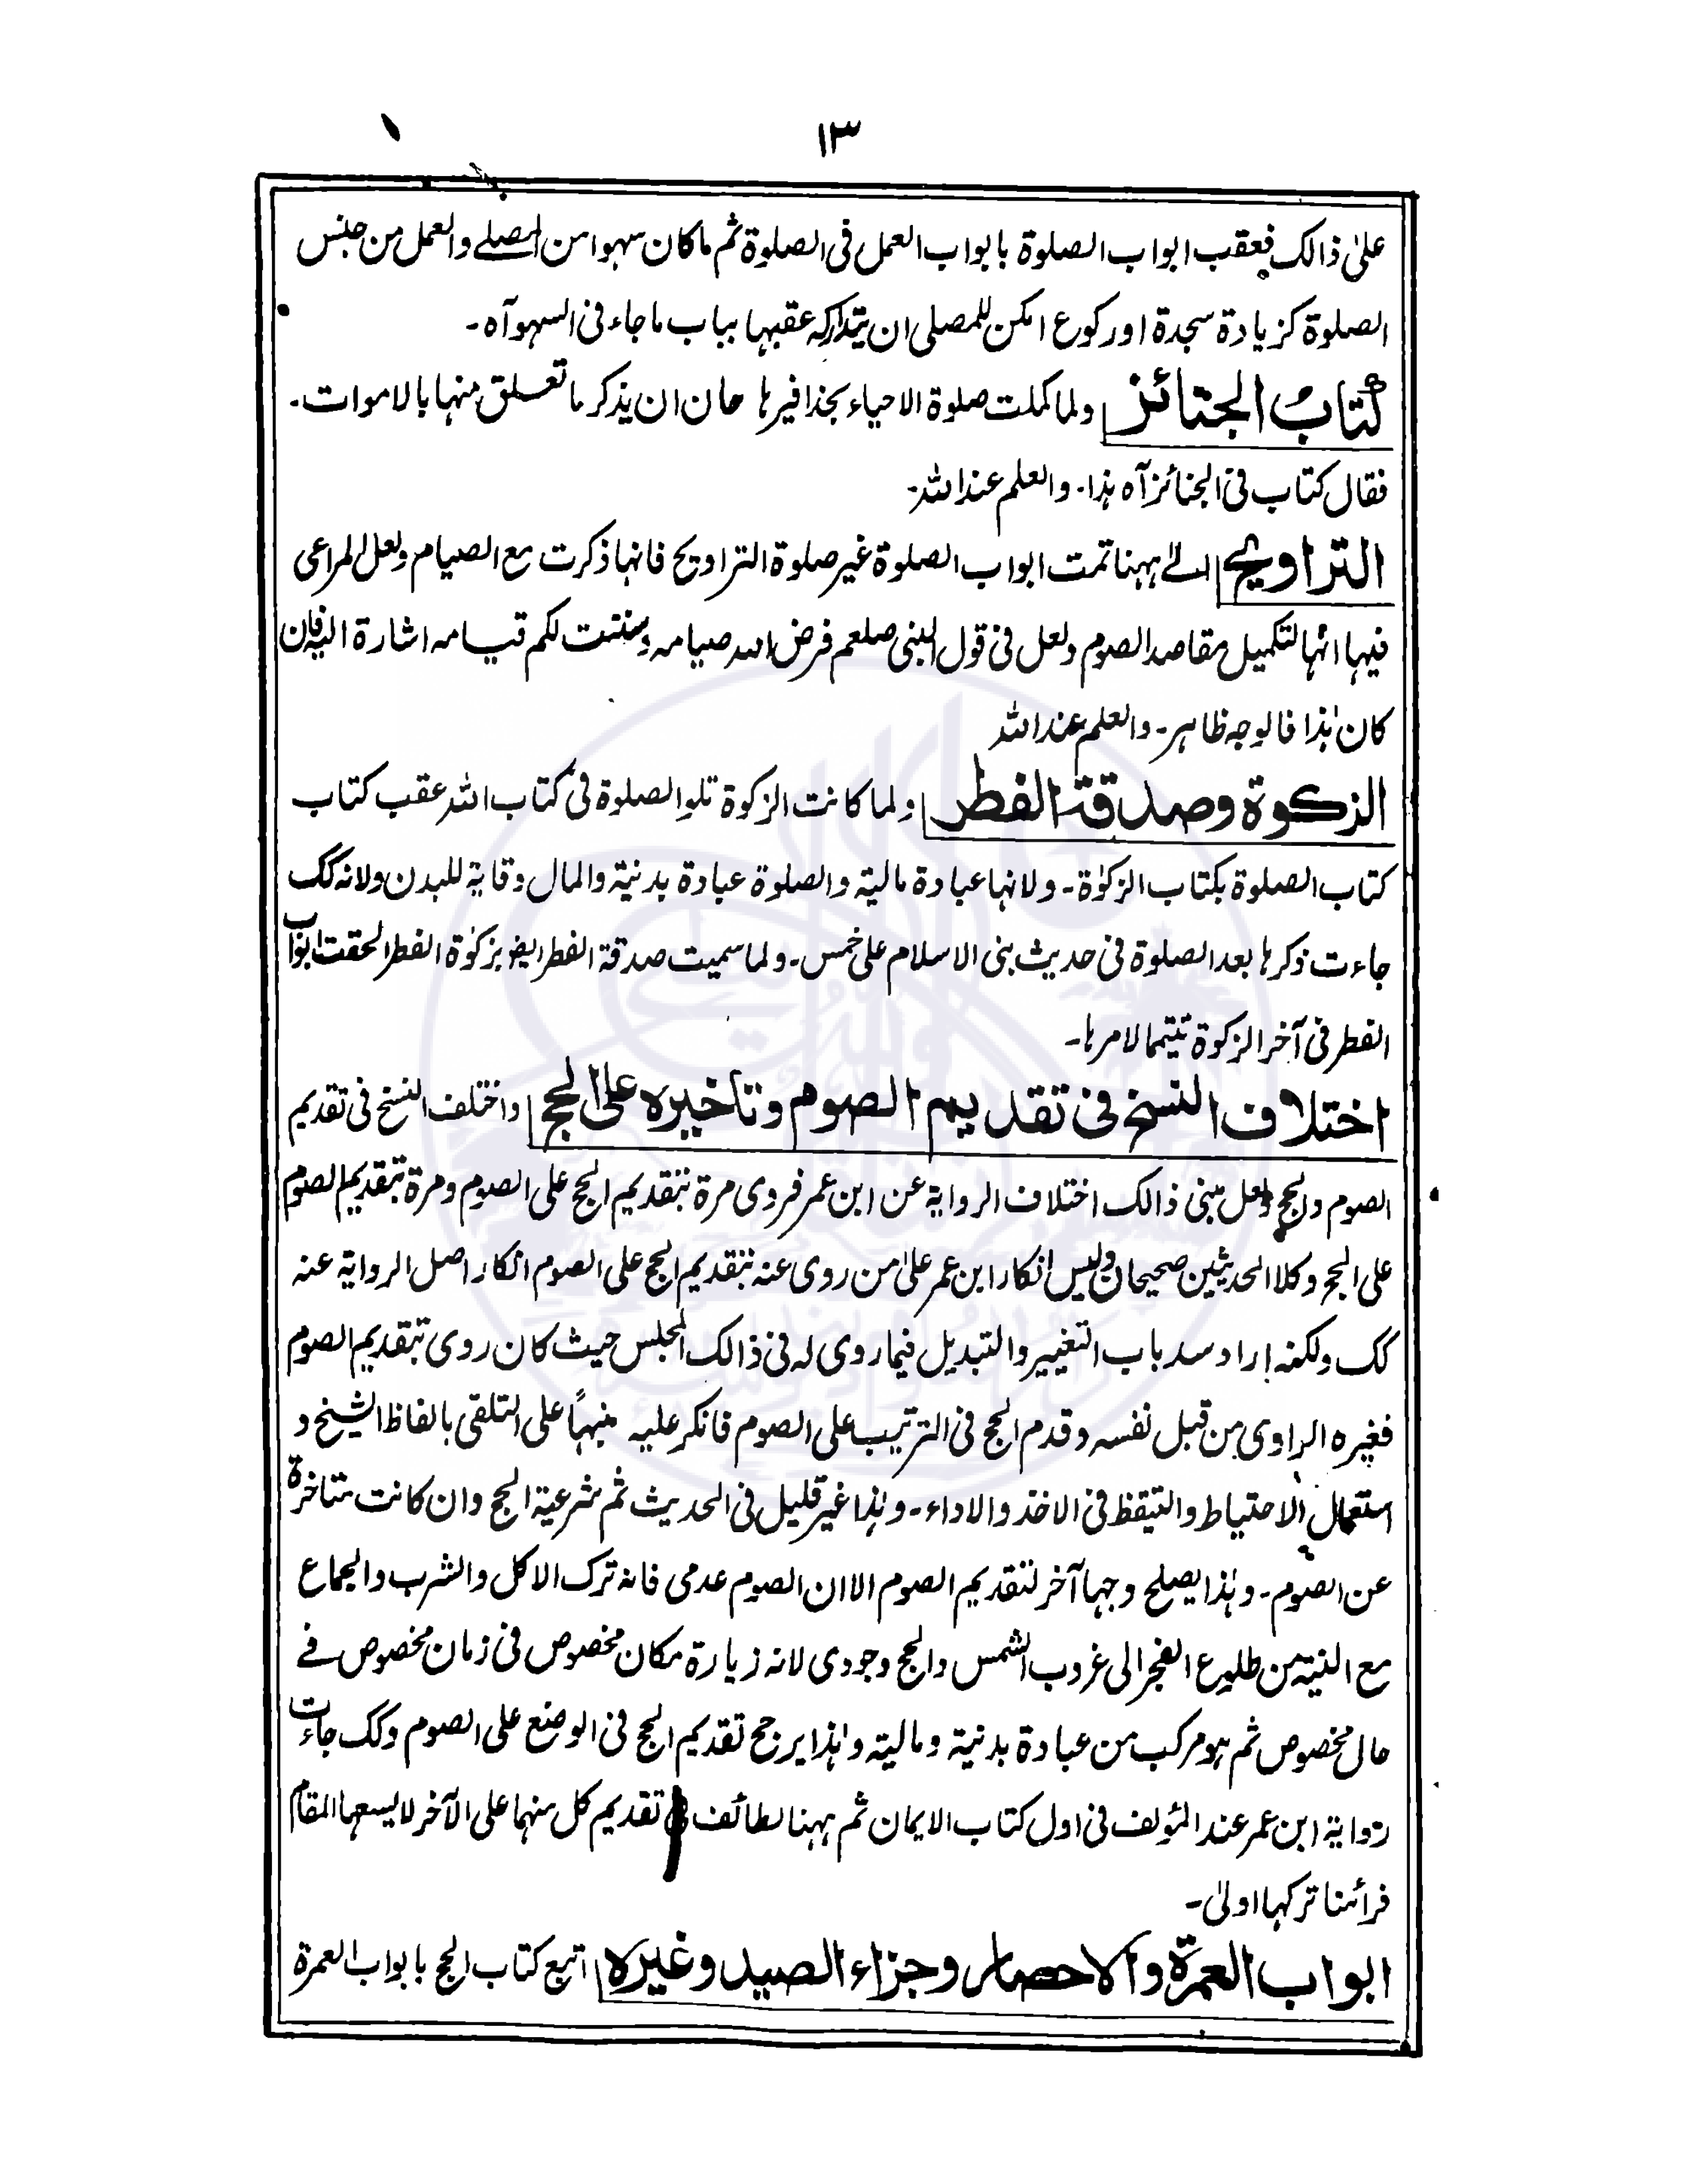 ١٣
علىٰ ذالک فعقب ابواب الصلوة بابواب العمل فى الصلوة ثم ما كان سہوا من المصلے والعمل من جنس
الصلوة كزيادة سجدة اوركوع امكن للمصلى ان يتداركہ عقبہا بباب ماجاء فى السہو آہ۔
كتاب الجنائز ولما كملت صلوة الاحياء بحذافيرہا حان ان يذكر ما تعلق منہا بالاموات۔
فقال كتاب فى الجنائز آہ ہٰذا۔ والعلم عند اللہ۔
التراويح الےٰ ہہنا تمت ابواب الصلوة غير صلوة التراويح فانہا ذكرت مع الصيام ولعل المراعى
فيہا انہا لتكميل مقاصد الصوم ولعل فى قول النبى صلعم فرض اللہ صيامہ وسننت لكم قيامہ اشارة اليہ فان
كان ہٰذا فالوجہ ظاہر۔ والعلم عند اللہ
الزكوة وصدقة الفطر ولما كانت الزكوة تلو الصلوة فى كتاب اللہ عقب كتاب
كتاب الصلوة بكتاب الزكوٰة۔ ولانہا عبادة مالية والصلوة عبادة بدنية والمال وقاية للبدن ولانہ كک
جاءت ذكرہا بعد الصلوة فى حديث بنى الاسلام على خمس۔ ولما سميت صدقة الفطر ايضہ بزكوٰة الفطر الحقت ابواب
الفطر فى آخر الزكوة تتيما لامرہا۔
اختلاف النسخ فى تقديم الصوم وتاخيره على الحج واختلف النسخ فى تقديم
الصوم والحج ولعل مبنى ذالک اختلاف الرواية عن ابن عمر فروى مرة بتقديم الحج على الصوم ومرة بتقديم الصوم
على الحج وكلا الحديثين صحيحان وليس انكار ابن عمر علىٰ من روى عنہ بتقديم الحج على الصوم انكار اصل الرواية عنہ
كک ولكنہ اراد سد باب التغيير والتبديل فيما روى لہ فى ذالک المجلس حيث كان روى بتقديم الصوم
فغيرہ الراوى من قبل نفسہ وقدم الحج فى الترتيب على الصوم فانكر عليہ منبہاً على التلقى بالفاظ الشيخ و
استعمال الاحتياط والتيقظ فى الاخذ والاداء۔ وہٰذا غير قليل فى الحديث ثم شرعية الحج وان كانت متاخرة
عن الصوم۔ وہٰذا يصلح وجہا آخر لتقديم الصوم الا ان الصوم عدمى فانہ ترک الاكل والشرب والجماع
مع النية من طلوع الفجر الى غروب الشمس والحج وجودى لانہ زيارة مكان مخصوص فى زمان مخصوص فے
حال مخصوص ثم ہو مركب من عبادة بدنية ومالية وہٰذا يرجح تقديم الحج فى الوضع على الصوم وكک جاءت
رواية ابن عمر عند المؤلف فى اول كتاب الايمان ثم ہہنا لطائف فى تقديم كل منہما على الآخر لا يسعہا المقام
فرائنا تركہا اولىٰ۔
ابواب العمرة والاحصار وجزاء الصيد وغيره اتبع كتاب الحج بابواب العمرة